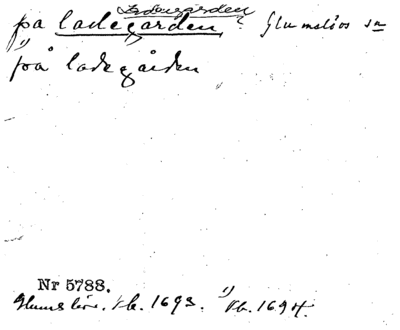 Ladugården?
på ladegården, Glumslös sn
1) på ladegården
Nr 5788.
Glumslöv. Kb. 1693. 1) Kb. 1694.